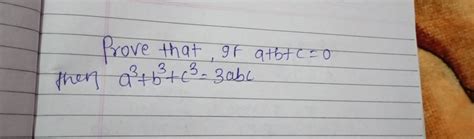 Prove that, if a+b+c=0
then a³+b³+c³=3abc